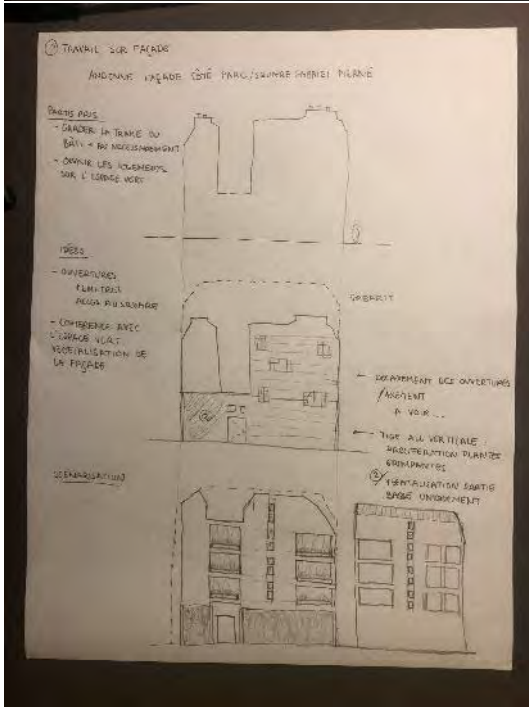 ① TRAVAIL SUR FAÇADE
ANCIENNE FAÇADE CÔTÉ PARC/SQUARE GABRIEL PIERNÉ
PARTIS PRIS
- GARDER LA TRAME DU
BÂTI
- OUVRIR LES LOGEMENTS
SUR L'ESPACE VERT
IDÉES
- OUVERTURES
ACCÈS AU SQUARE
GABARIT
- COHÉRENCE AVEC
L'ESPACE VERT
VÉGÉTALISATION DE
LA FAÇADE
DES OUVERTURES
A VOIR...
TIGE ALU VERTICALE
PLANTES
GRIMPANTES
② VÉGÉTALISATION PARTIE
BASSE UNIQUEMENT
SCÉNARISATION
②